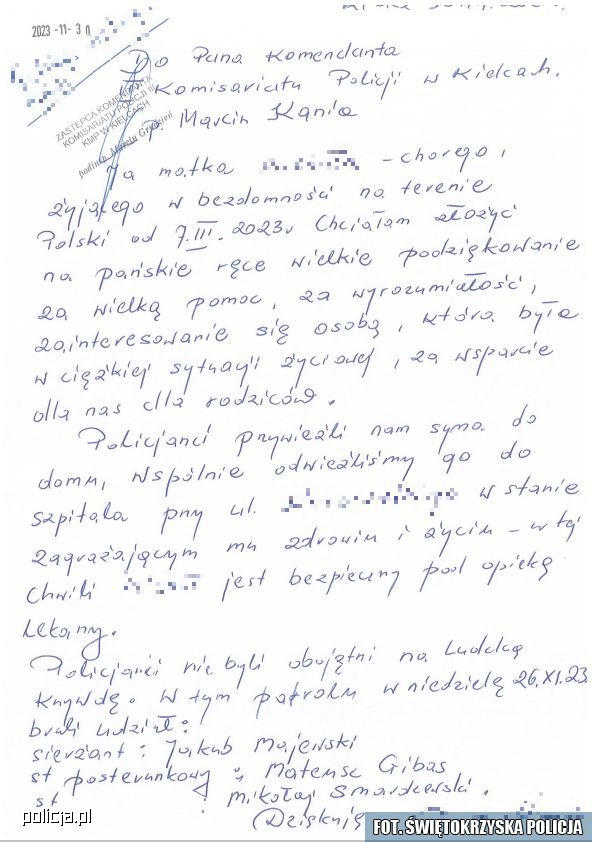 2023 -11- 3 0
Do Pana Komendanta
III Komisariatu Policji w Kielcach.
ZASTĘPCA KOMENDANTA
KOMISARIATU POLICJI III
KMP W KIELCACH
P. Marcin Kania
Ja matka - chorego,
żyjącego w bezdomności na terenie
Polski od 7.III.2023r Chciałam złożyć
na pańskie ręce wielkie podziękowanie
za wielką pomoc, za wyrozumiałość,
zainteresowanie się osobą, która była
w ciężkiej sytuacji życiowej, za wsparcie
dla nas dla rodziców.
Policjanci przywieźli nam syna do
domu, wspólnie odwieźliśmy go do
szpitala przy ul. w stanie
zagrażającym mu zdrowiu i życiu - w tej
chwili jest bezpieczny pod opieką
lekarzy.
Policjanci nie byli obojętni na ludzką
krzywdę. W tym patrolu w niedzielę 26.XI.23
brali udział:
sierżant : Jakub Majewski
st posterunkowy : Mateusz Gibas
st : Mikołaj Smardzewski.
Dziękuję
policja.pl
FOT. ŚWIĘTOKRZYSKA POLICJA